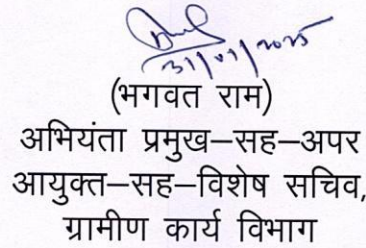 31/01/2025
(भगवत राम)
अभियंता प्रमुख–सह–अपर
आयुक्त–सह–विशेष सचिव,
ग्रामीण कार्य विभाग